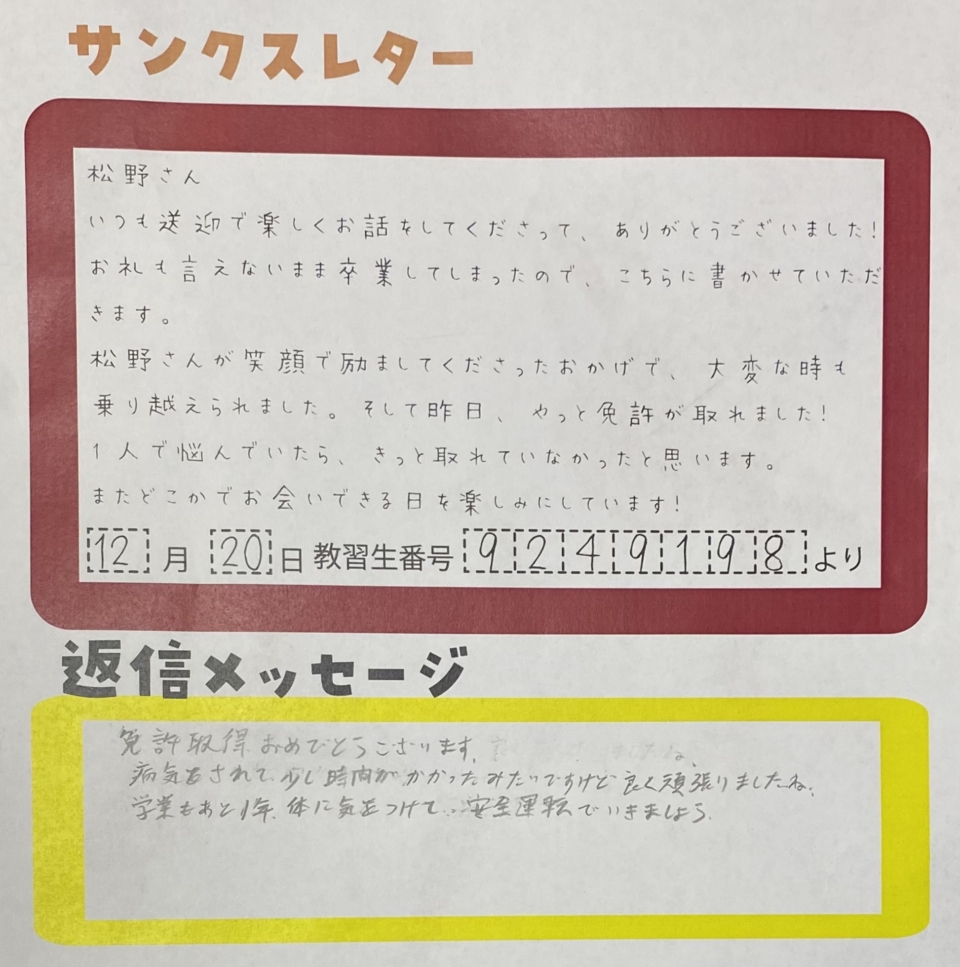 サンクスレター
松野さん
いつも送迎で楽しくお話をしてくださって、ありがとうございました!
お礼も言えないまま卒業してしまったので、こちらに書かせていただ
きます。
松野さんが笑顔で励ましてくださったおかげで、大変な時も
乗り越えられました。そして昨日、やっと免許が取れました!
1人で悩んでいたら、きっと取れていなかったと思います。
またどこかでお会いできる日を楽しみにしています!
12月20日教習生番号9249198より
返信メッセージ
免許取得おめでとうございます。
病気をされて、少し時間がかかったみたいですけど良く頑張りましたね。
学業もあと1年、体に気をつけて、安全運転でいきましょう。